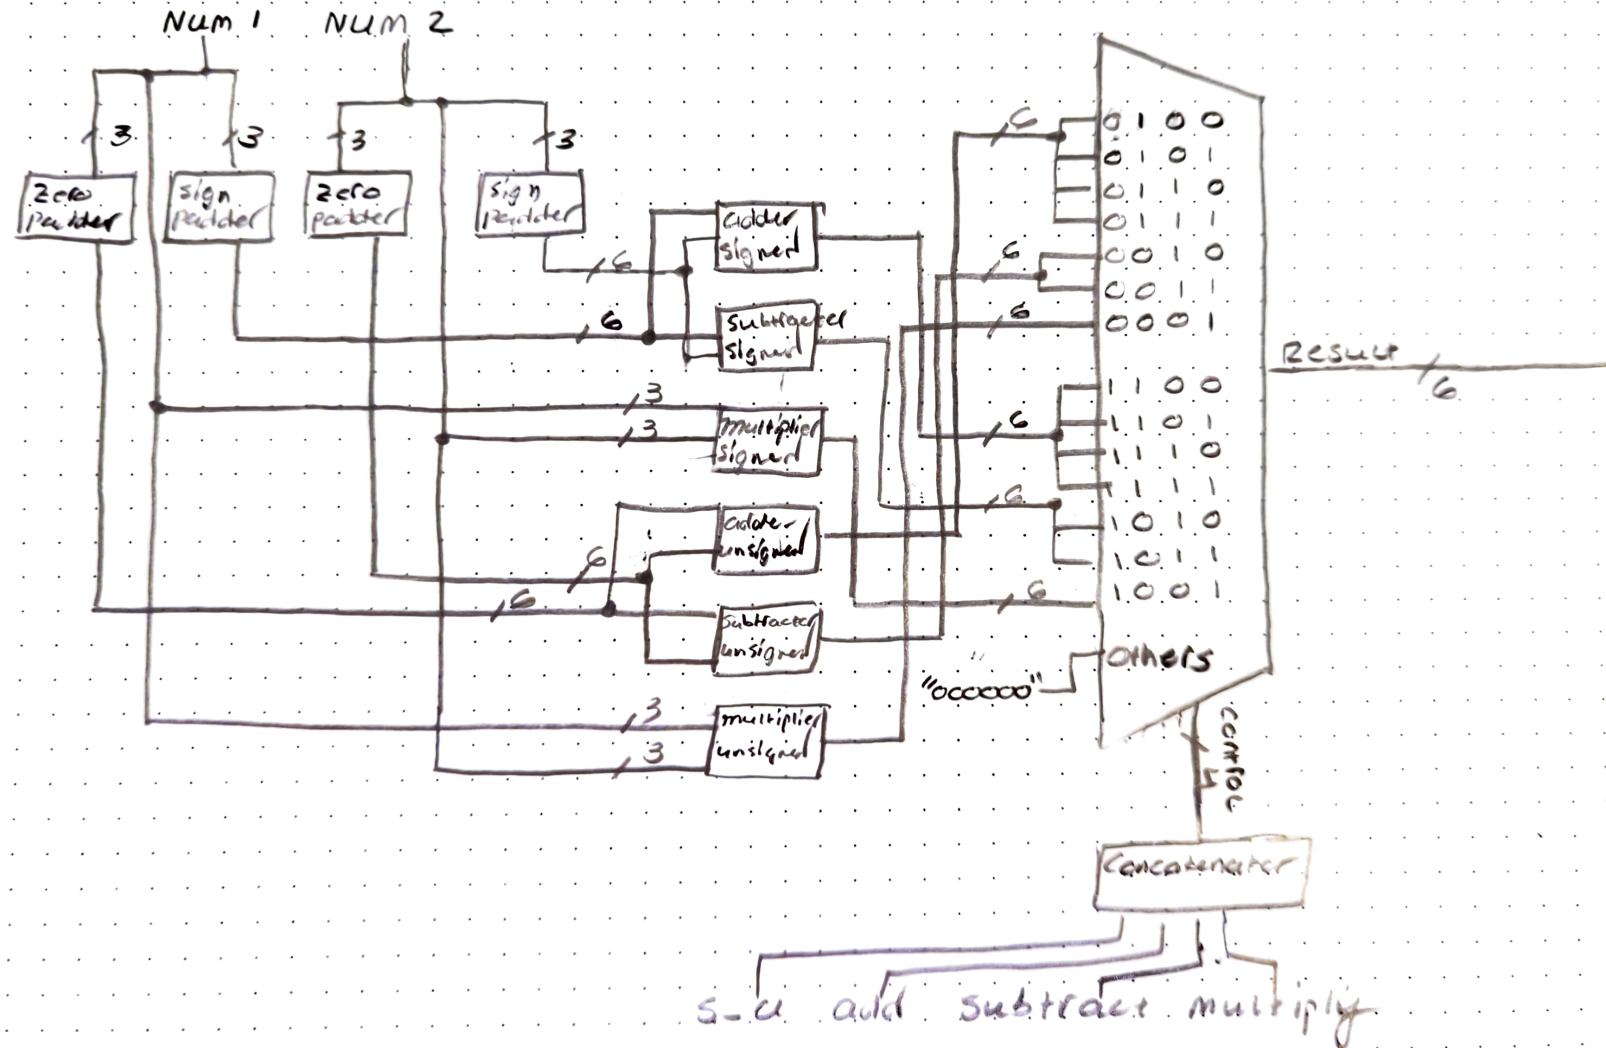 Num 1 Num 2
3 3 3 3
Zero padder
sign padder
Zero padder
sign padder
adder signed
subtracter signed
multiplier signed
adder unsigned
subtracter unsigned
multiplier unsigned
6
6
3
3
6
6
3
3
6
6
6
6
6
6
0 1 0 0
0 1 0 1
0 1 1 0
0 1 1 1
0 0 1 0
0 0 1 1
0 0 0 1
1 1 0 0
1 1 0 1
1 1 1 0
1 1 1 1
1 0 1 0
1 0 1 1
1 0 0 1
Others
"000000"
Result
6
control
4
Concatenator
s_u add subtract multiply